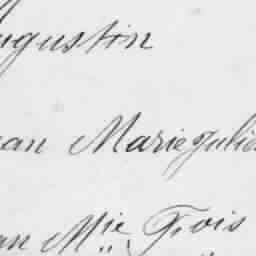 ugustin
ean Marie Julien
an Mie Fois